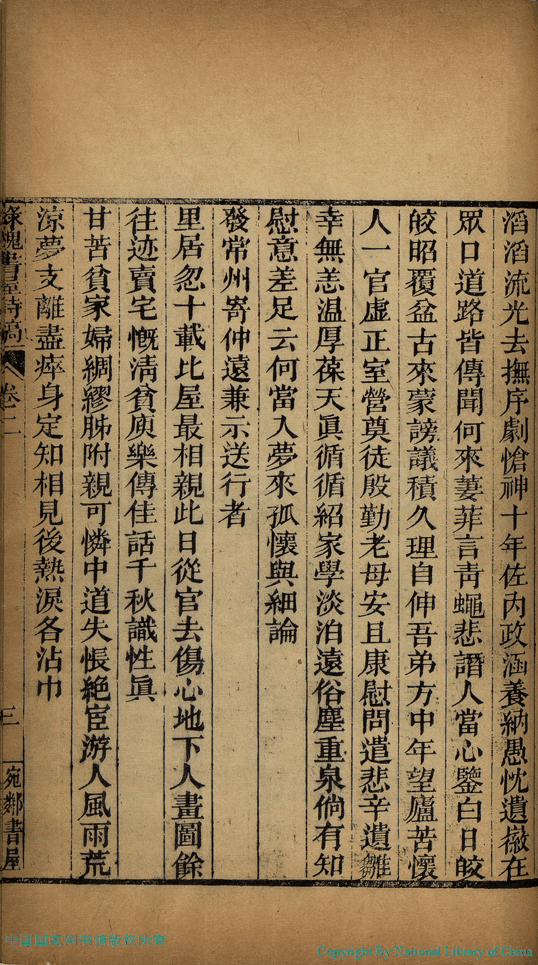 滔滔流光去撫序劇愴神十年佐內政涵養納愚忱遺徽在
眾口道路皆傳聞何來萋菲言靑蠅悲譖人當心鑒白日皎
皎昭覆盆古來蒙謗議積久理自伸吾弟方中年望廬苦懷
人一官虛正室營奠徒殷勤老母安且康慰問遣悲辛遺雛
幸無恙温厚葆天眞循循紹家學淡泊遠俗塵重泉倘有知
慰意差足云何當入夢來孤懷與細論
發常州寄仲遠兼示送行者
里居忽十載比屋最相親此日從官去傷心地下人畫圖餘
往迹賣宅慨淸貧庾樂傳佳話千秋識性眞
甘苦貧家婦綢繆胏附親可憐中道失悵絶宦游人風雨荒
涼夢支離盡瘁身定知相見後熱淚各沾巾
綠槐書屋詩稿 卷二 三 宛鄰書屋
中國國家圖書館
Copyright By National Library of China